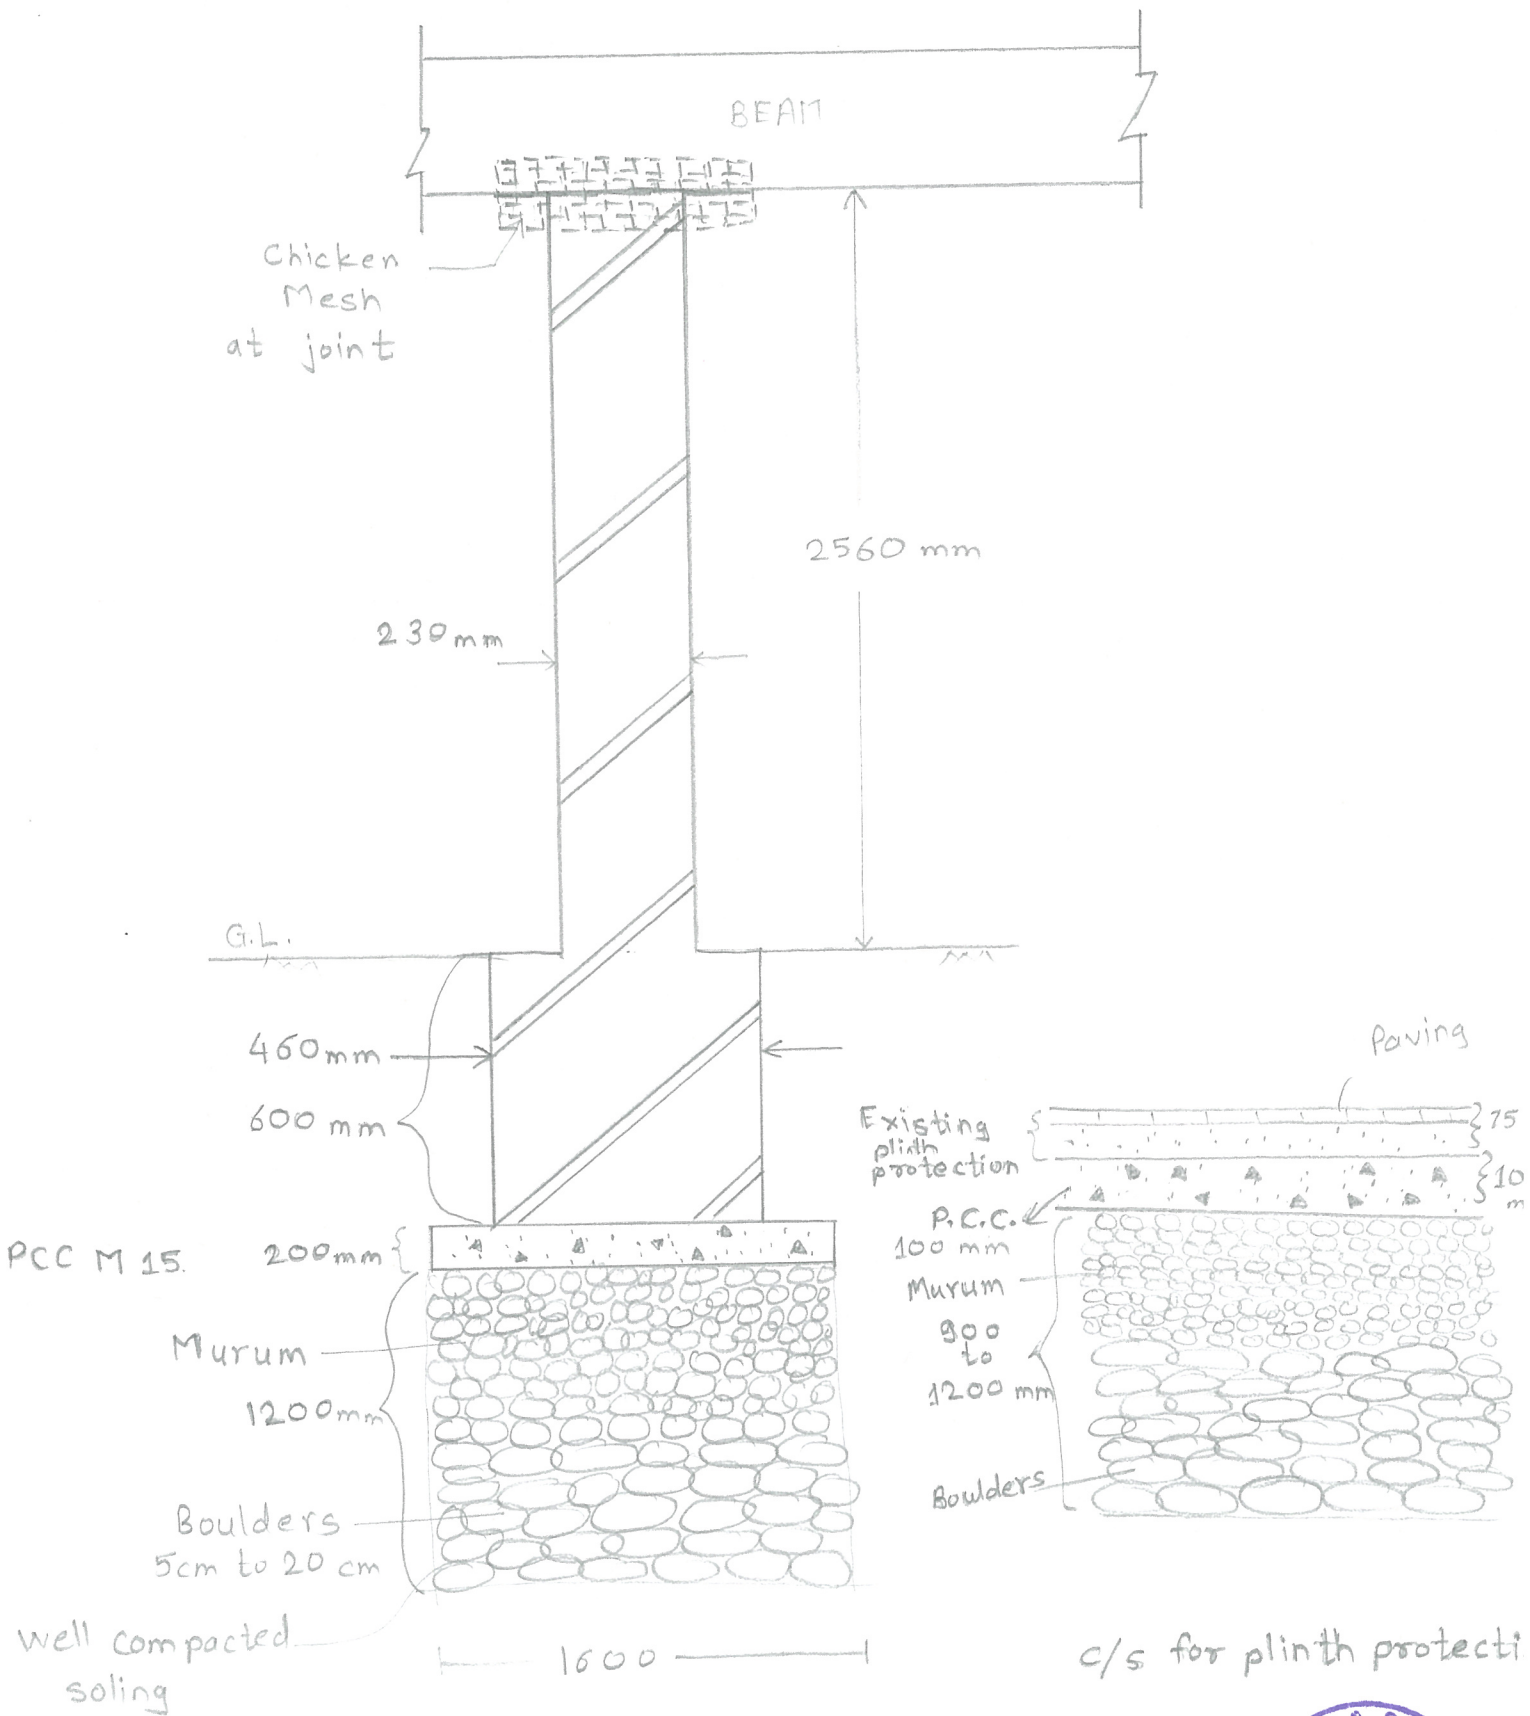 BEAM
Chicken
Mesh
at joint
2560 mm
230mm
G.L.
460mm
600 mm
PCC M 15.
200mm
Murum
1200mm
Boulders
5cm to 20 cm
Well compacted
soling
1600
Paving
Existing
plinth
protection
75
10
m
P.C.C.
100 mm
Murum
900
to
1200 mm
Boulders
c/s for plinth protecti